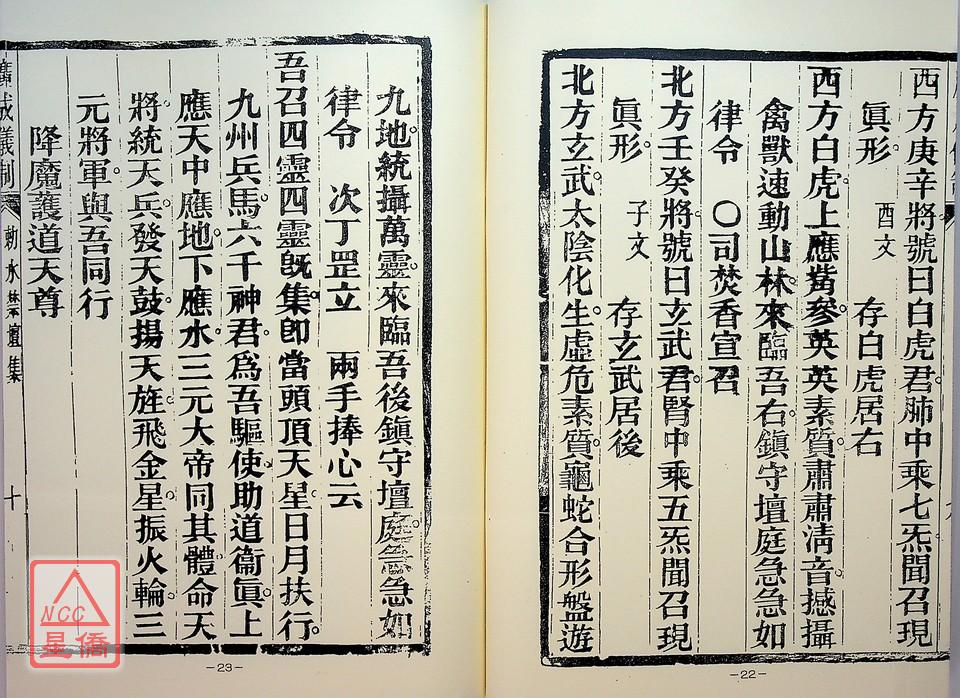 西方庚辛將號曰白虎君。肺中乘七炁聞召現
眞形。 酉文 存白虎居右
西方白虎。上應觜參。英英素質。肅肅清音。撼攝
禽獸速動山林。來臨吾右。鎮守壇庭急急如
律令 〇司焚香宣召
北方壬癸。將號曰玄武君。腎中乘五炁聞召現
眞形。 子文 存玄武居後
北方玄武。太陰化生。虛危素質。龜蛇合形。盤遊
-22-
九地。統攝萬靈。來臨吾後。鎮守壇庭。急急如
律令 次丁罡立 兩手捧心云
吾召四靈四靈旣集。卽當頭頂天星。日月扶行。
九州兵馬。六千神君。爲吾驅使。助道衞眞。上
應天中應地。下應水。三元大帝同其體。命天
將統天兵。發天鼓。揚天旌。飛金星。振火輪。三
元將軍。與吾同行
降魔護道天尊
廣成儀制 勅水禁壇集 十
-23-
NCC
星僑